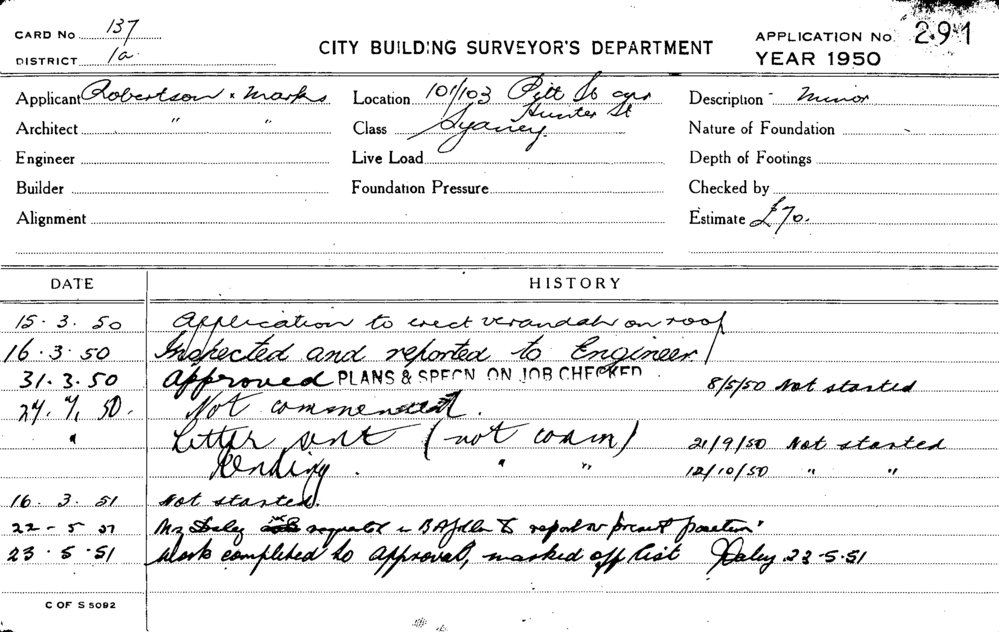 CARD No 137
DISTRICT 1a
CITY BUILDING SURVEYOR'S DEPARTMENT
APPLICATION No. 291
YEAR 1950
Applicant Robertson & Marks
Location 101/103 Pitt St cnr Hunter St
Description Minor
Architect " "
Class Sydney.
Nature of Foundation
Engineer
Live Load
Depth of Footings
Builder
Foundation Pressure
Checked by
Alignment
Estimate £70.
DATE HISTORY
15.3.50 Application to erect verandah on roof
16.3.50 Inspected and reported to Engineer
31.3.50 Approved PLANS & SPECN ON JOB CHECKED 8/5/50 Not started
24.7.50. Not commenced.
" Letter sent (not comm) 21/9/50 Not started
Pending. " " 12/10/50 " "
16.3.51 Not started.
22-5-51 Mr Daley requested to report present position
23.5.51 Work completed to approval, marked off list JDaley 23-5-51
C OF S 5092